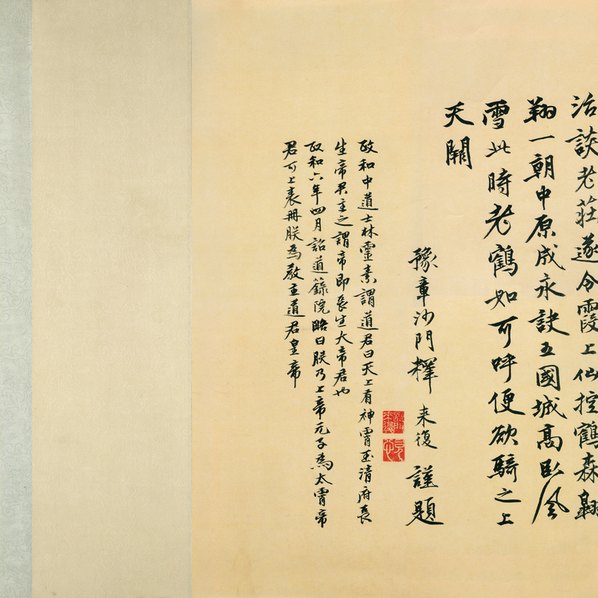 活談老莊遂令霞上仙控鶴森翱
翔一朝中原成永訣五國城高臥風
雪此時老鶴如可呼便欲騎之上
天關
豫章沙門釋來復謹題
政和中道士林靈素謂道君曰天上有神霄玉清府長
生帝君主之謂帝即長生大帝君也
政和六年四月詔道籙院略曰朕乃上帝元子為太霄帝
君可上表冊朕為教主道君皇帝